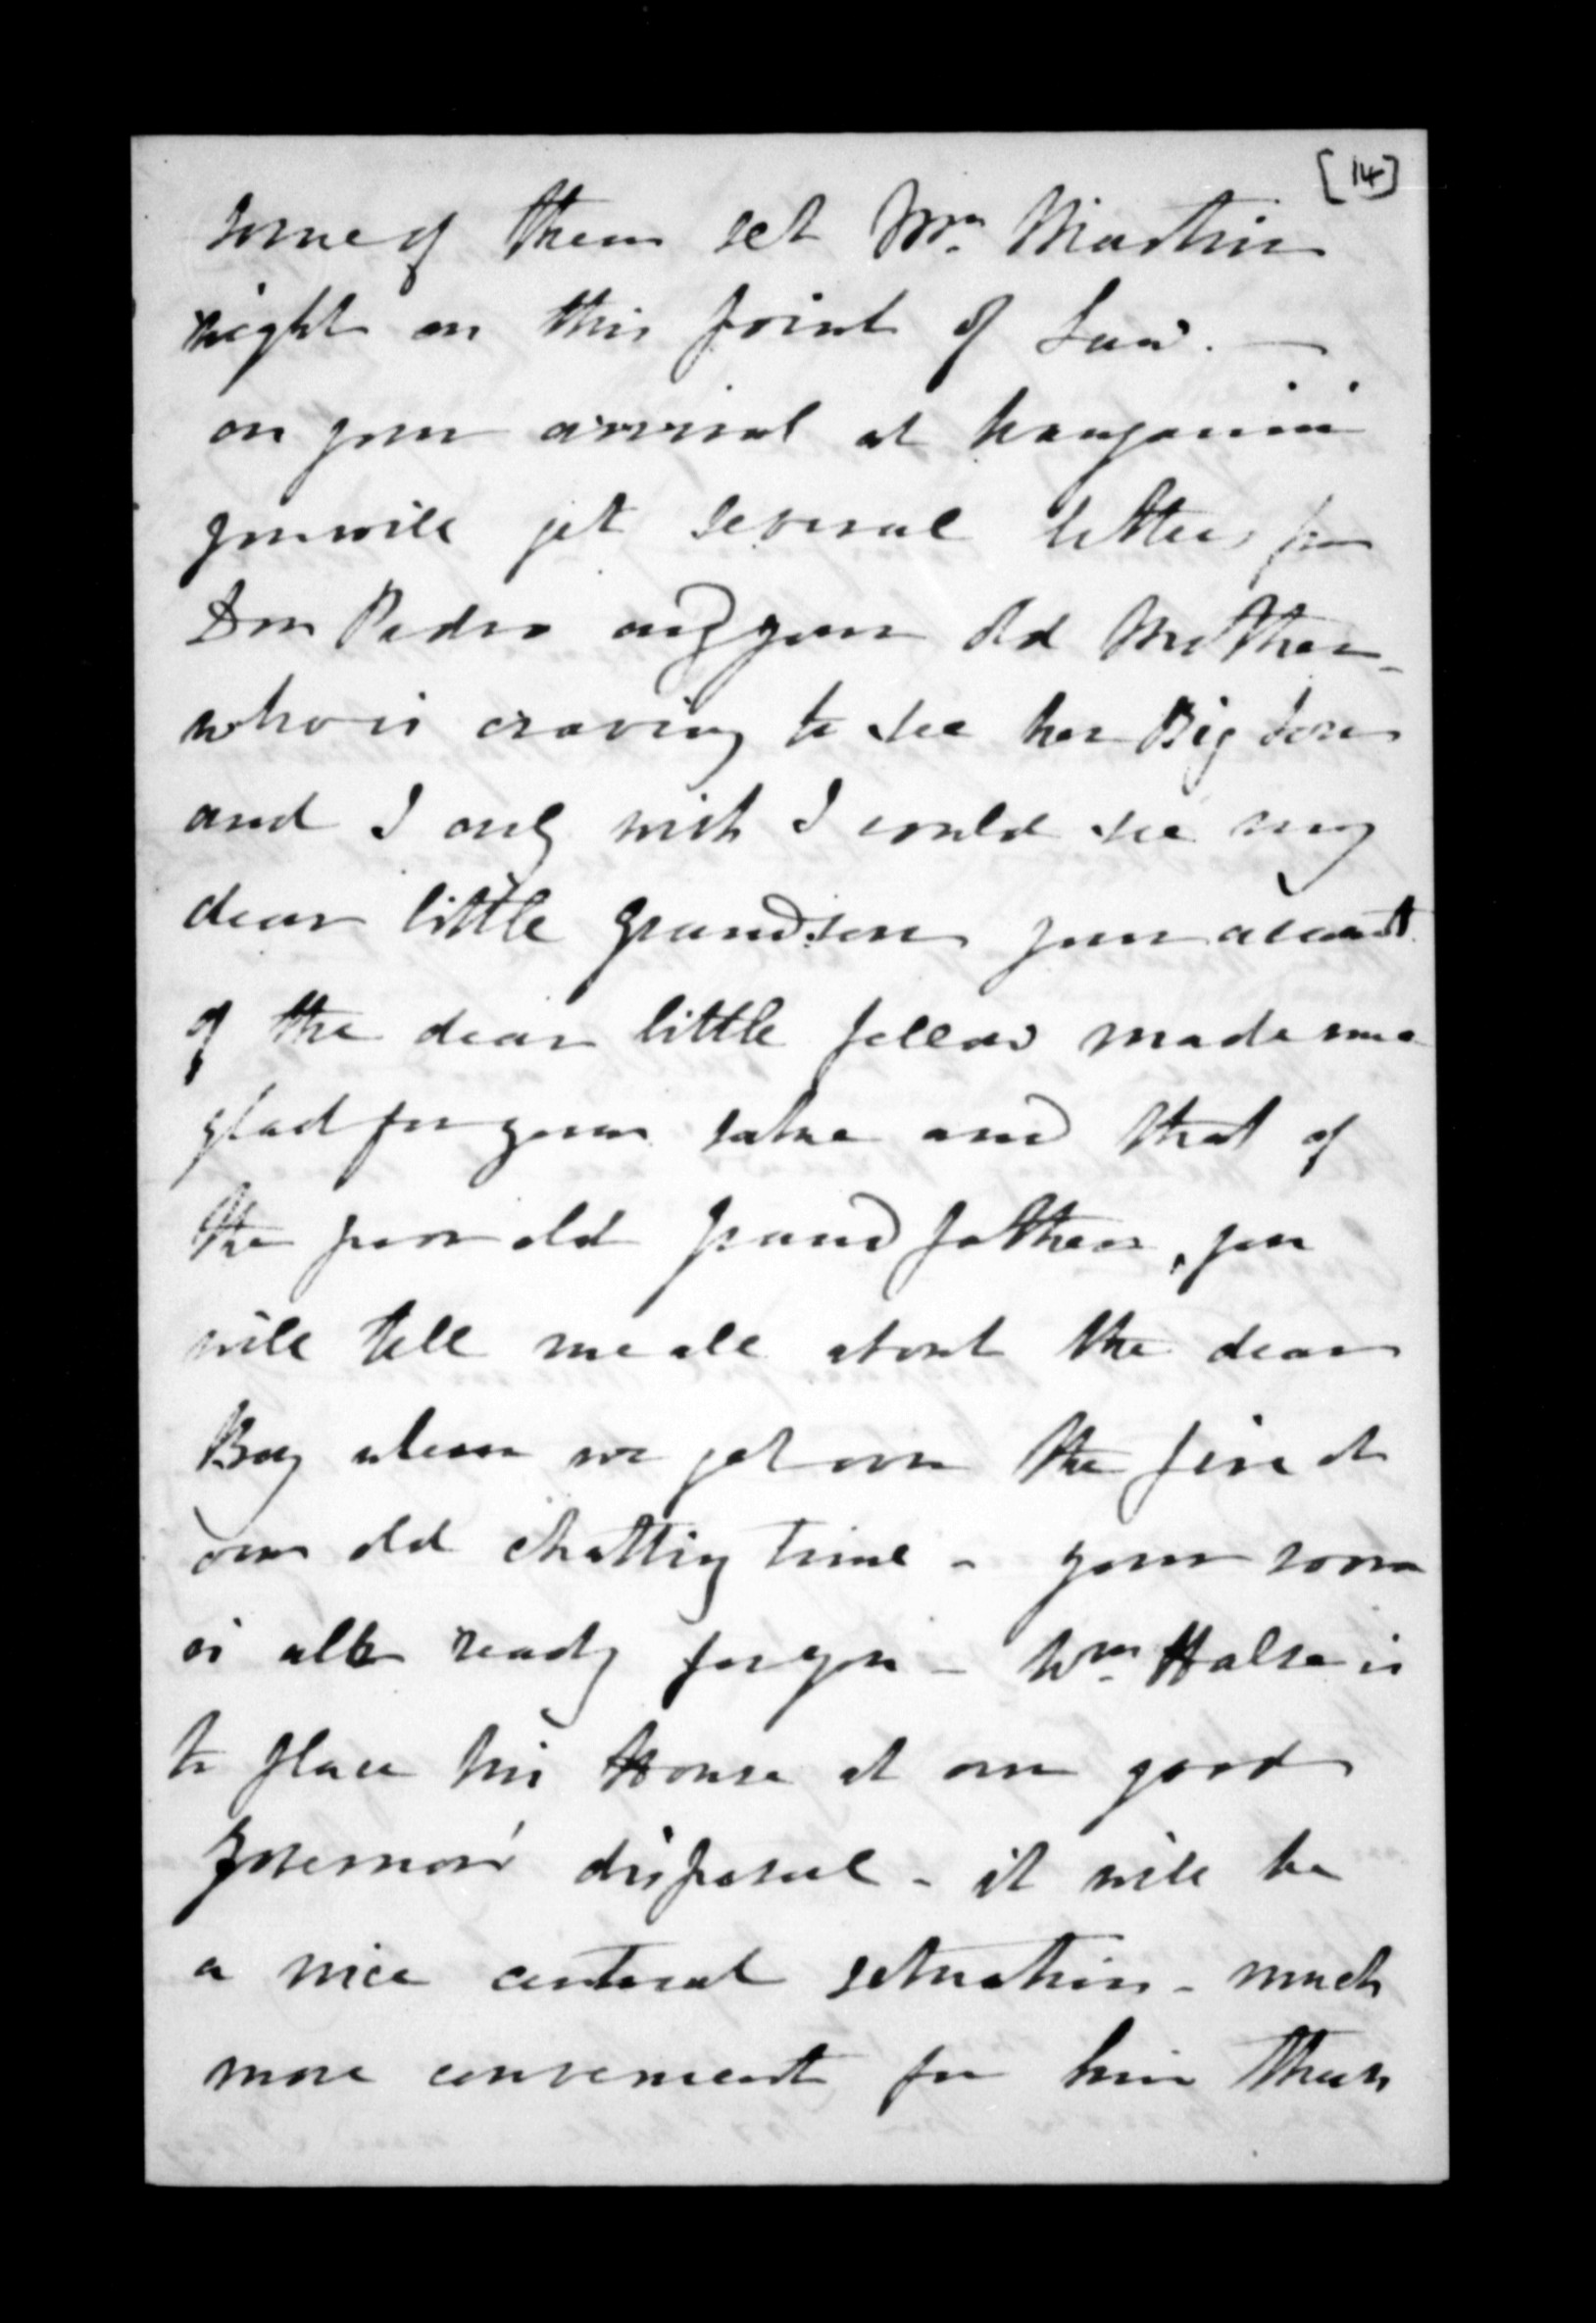 [14]
some of them set Mr. Martin
right on this point of Law. —
on your arrival at Wanganui
you will get several letters from
Don Pedro and your old Mother -
who is craving to see her Big Son
and I only wish I could see my
dear little grandson your account
of the dear little fellow made me
glad for your sake and that of
the poor old grandfather, you
will tell me all about the dear
Boy when we get over the fire at
our old chatting time - your room
is all ready for you - Wm. Halse is
to place his House at our good
Governors' disposal - it will be
a nice central situation - much
more convenient for him than